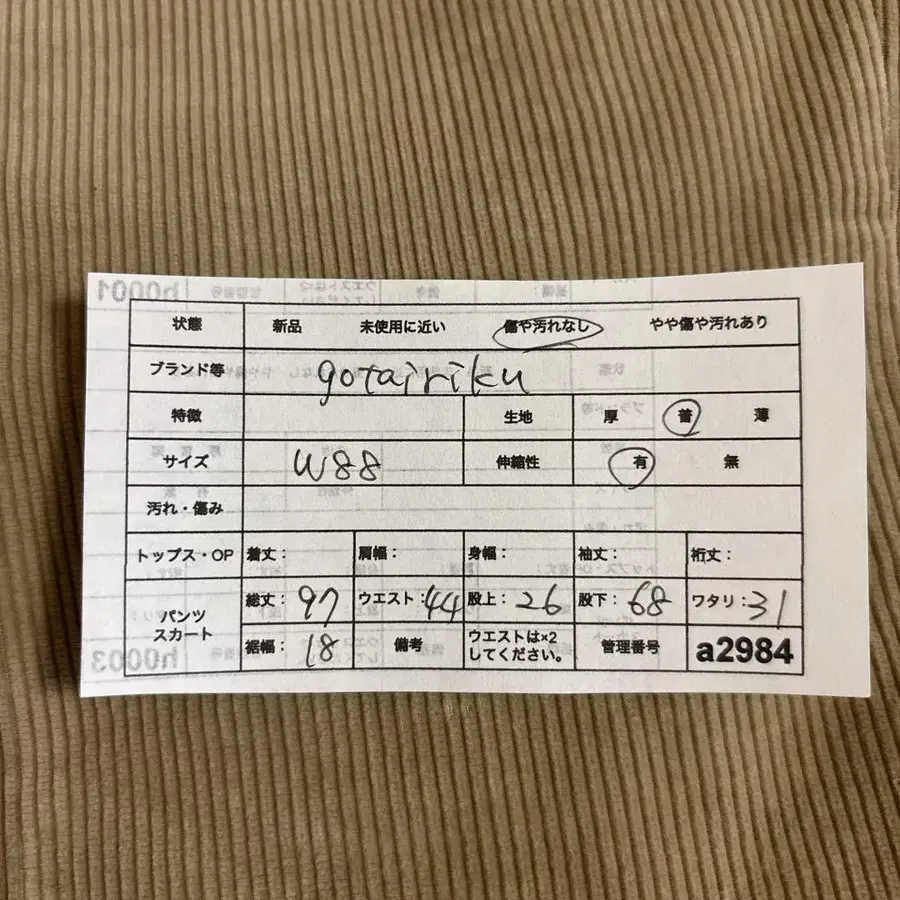 状態 新品 未使用に近い 傷や汚れなし やや傷や汚れあり
ブランド等 gotairiku
特徴 生地 厚 普 薄
サイズ W88 伸縮性 有 無
汚れ・傷み
トップス・OP 着丈: 肩幅: 身幅: 袖丈: 裄丈:
パンツ スカート 総丈:97 ウエスト:44 股上:26 股下:68 ワタリ:31
裾幅:18 備考 ウエストは×2 してください。 管理番号 a2984
h0001
h0003